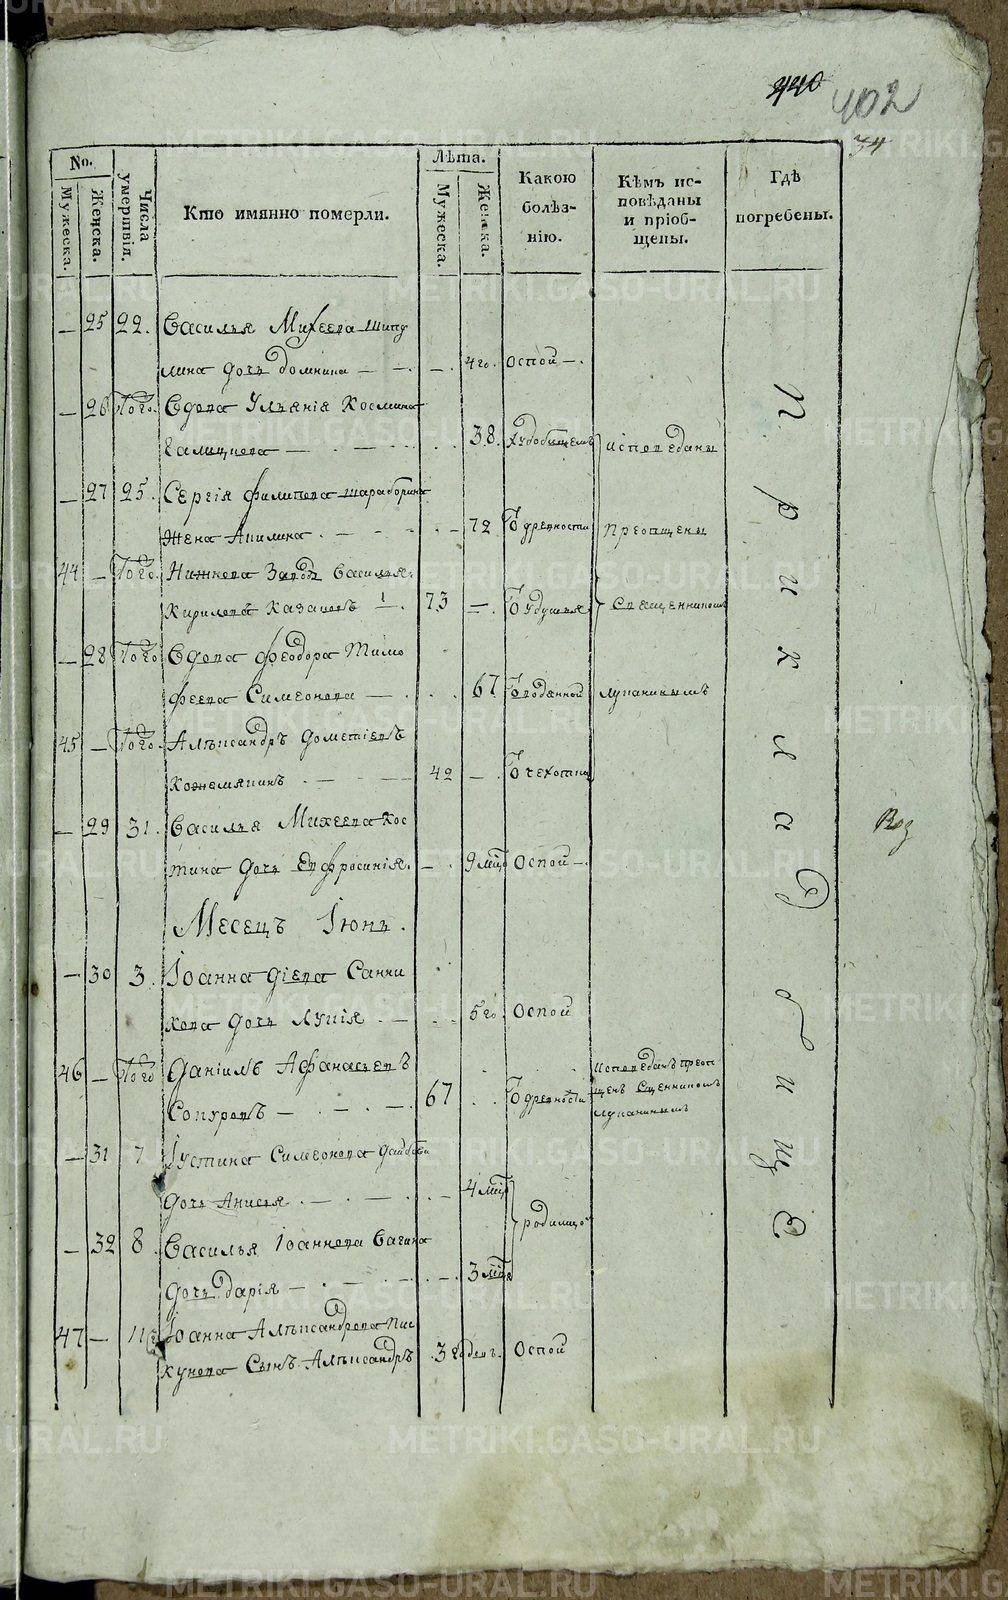 440
402
34
No.
Мужеска.
Женска.
Числа умертвія.
Кто имянно померли.
Лѣта.
Мужеска.
Женска.
Какою болѣз-нію.
Кѣмъ ис-повѣданы и пріоб-щены.
Гдѣ погребены.
— 25 22. Василья Михеева Шипу
лина дочь Домнина — — . 4 го. Оспой — .
— 26 Того. Вдова Ульянія Космина
Галицнева — . — . 38. исповеданы
— 27 25. Сергія Филипева шараборина
Жена Акилина . — . — 72 древности Преопщены
44 — Того. Нижнева Завод Василья
Кирилевъ Казаневъ 73 — . удушья Священникомъ
— 28 Того Вдова Феодора Тимо
феева Симеонова — . 67 Лупанинымъ
45 — Того. Алѣксандръ дометіевъ
Кожемякинъ . — 42 — . чехотни
— 29 31. Василья Михеева Кос
тина дочь Евфросинія. — . 9 мѣц Оспой — .
Rog
Месецъ Іюнь.
— 30 3. Іоанна діева Санни
кова дочь Лукія — . 5 го Оспой
46 — Того Даніилъ Афанасьевъ Исповеданъ преоп
Сопуровъ — . — . 67 древности щенъ Сщенникомъ
Лупанинымъ
— 31 7 Іустина Симеонова
дочь Анисья . — . — 4 мѣц
родимцо
— 32 8. Василья Іоаннова Вагина
дочь дарія — . — 3 мѣц
47 — 11 Іоанна Алѣксандрова Пис
кунова Сынъ Алѣксандръ . 3 годовъ. Оспой
При кладбище
METRIKI.GASO-URAL.RU